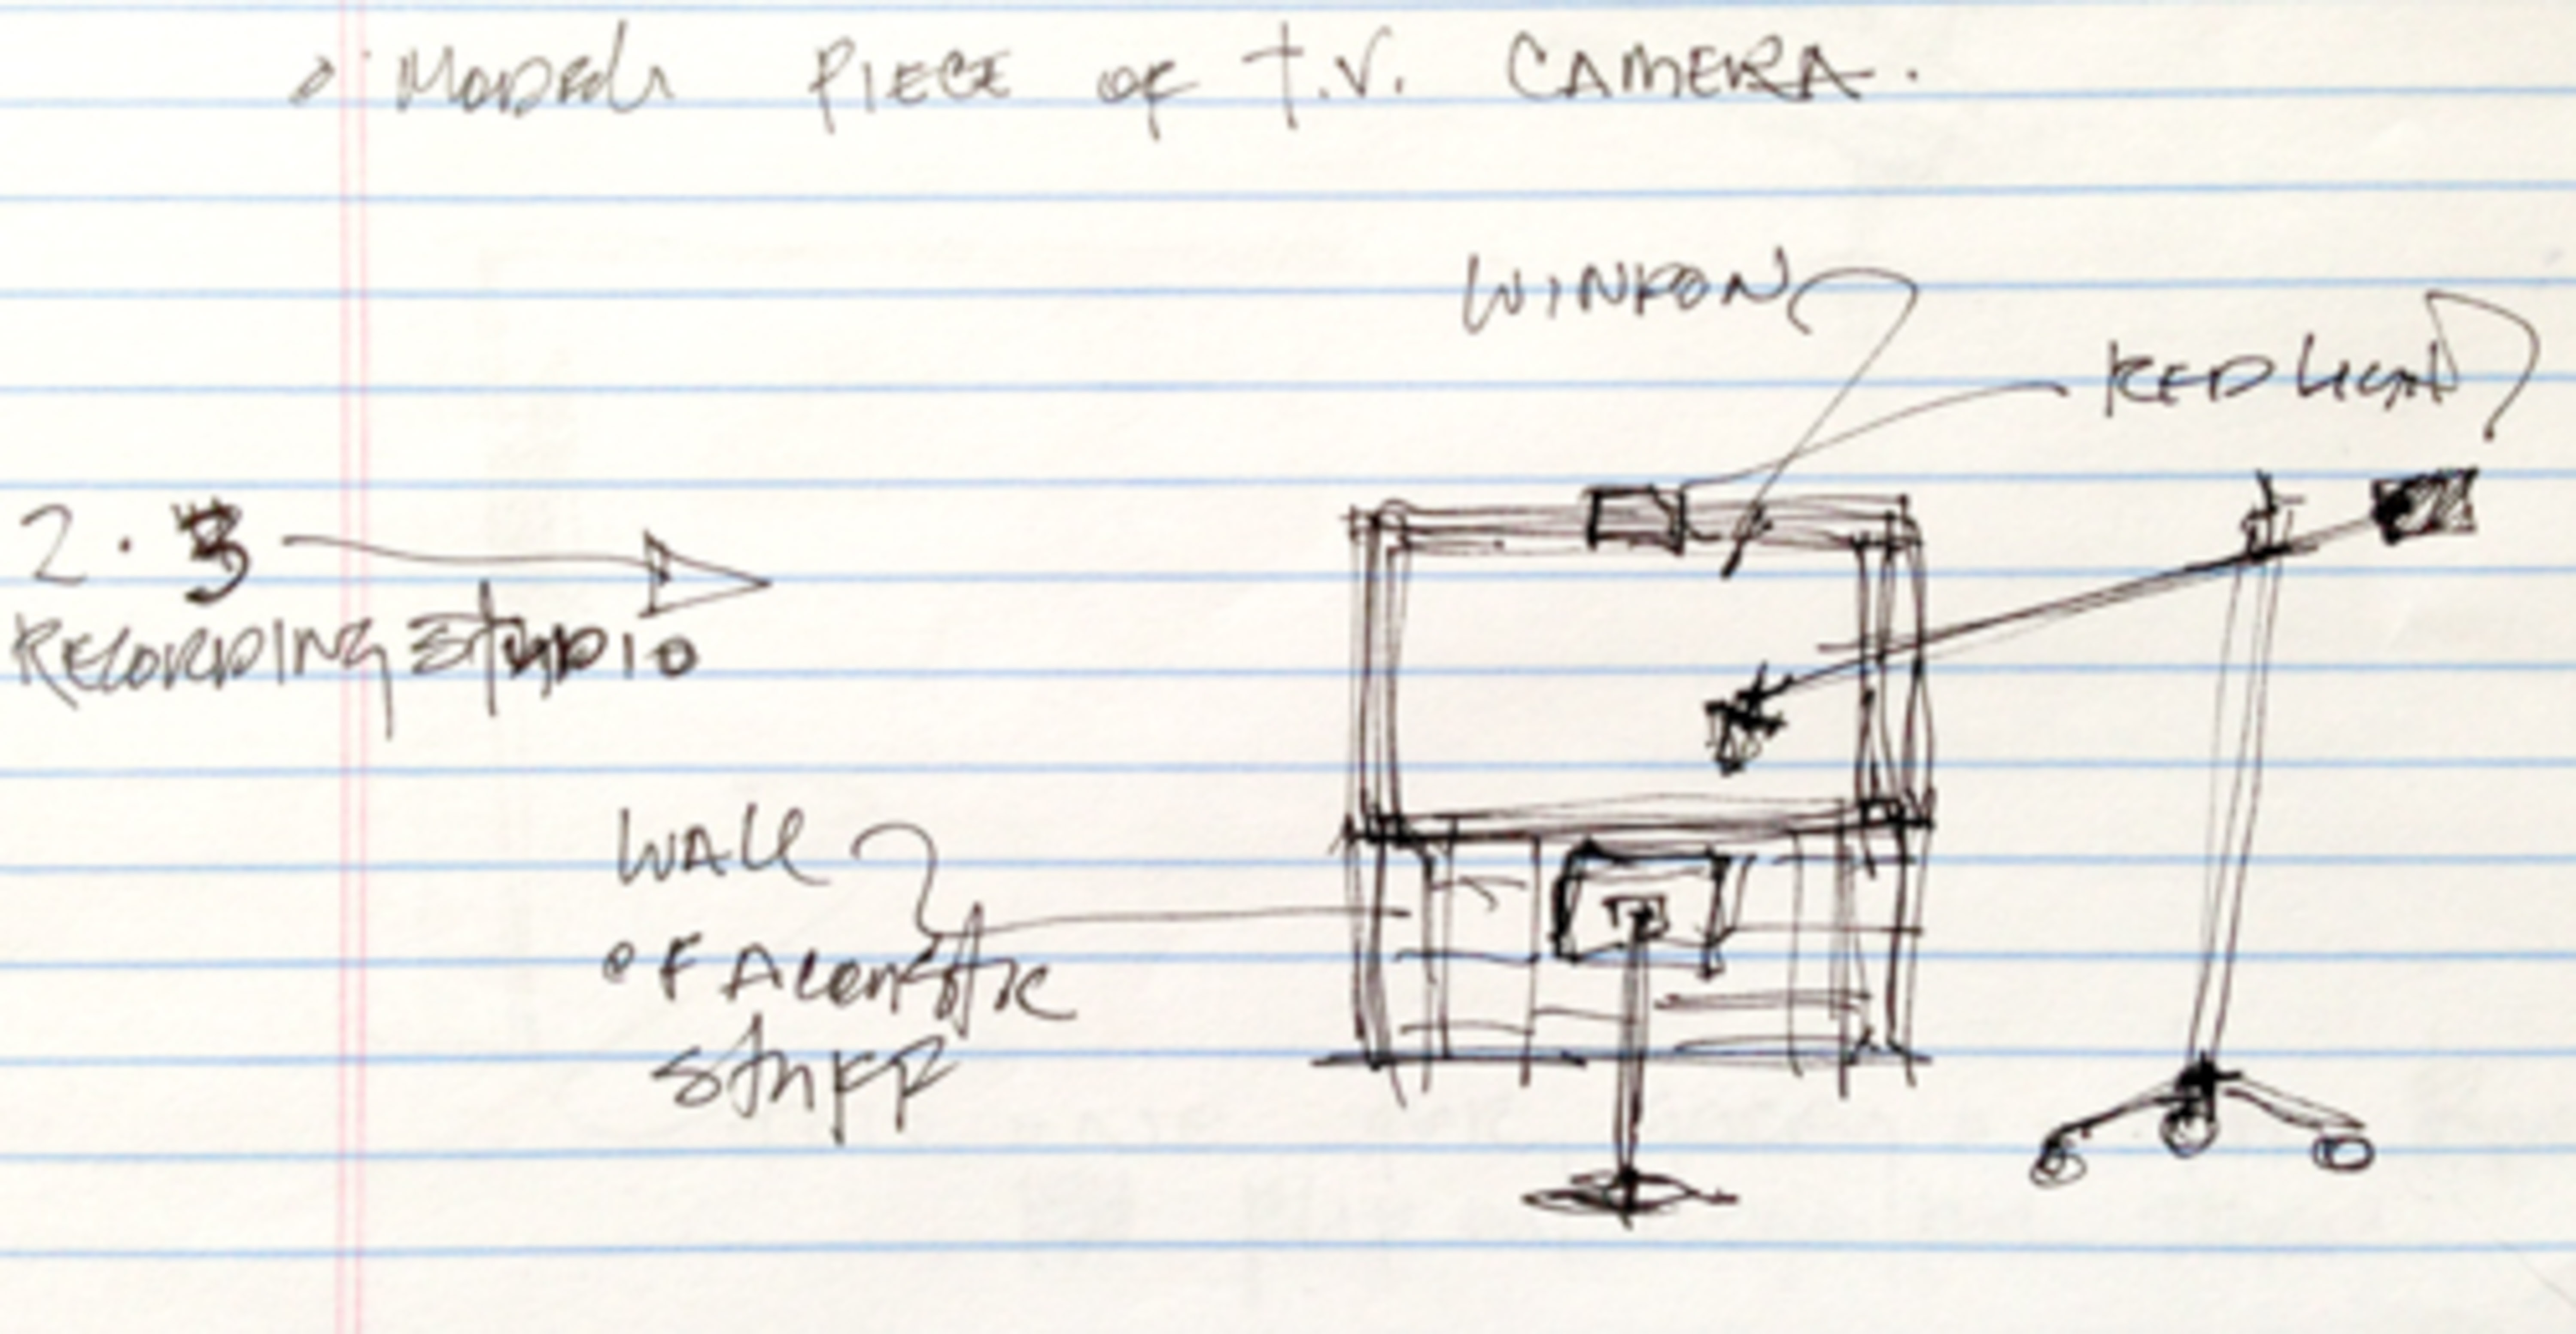 MODEL PIECE OF T.V. CAMERA.
WINDOW
RED LIGHT
2. 3
RECORDING STUDIO
WALL
OF ACOUSTIC
STUFF